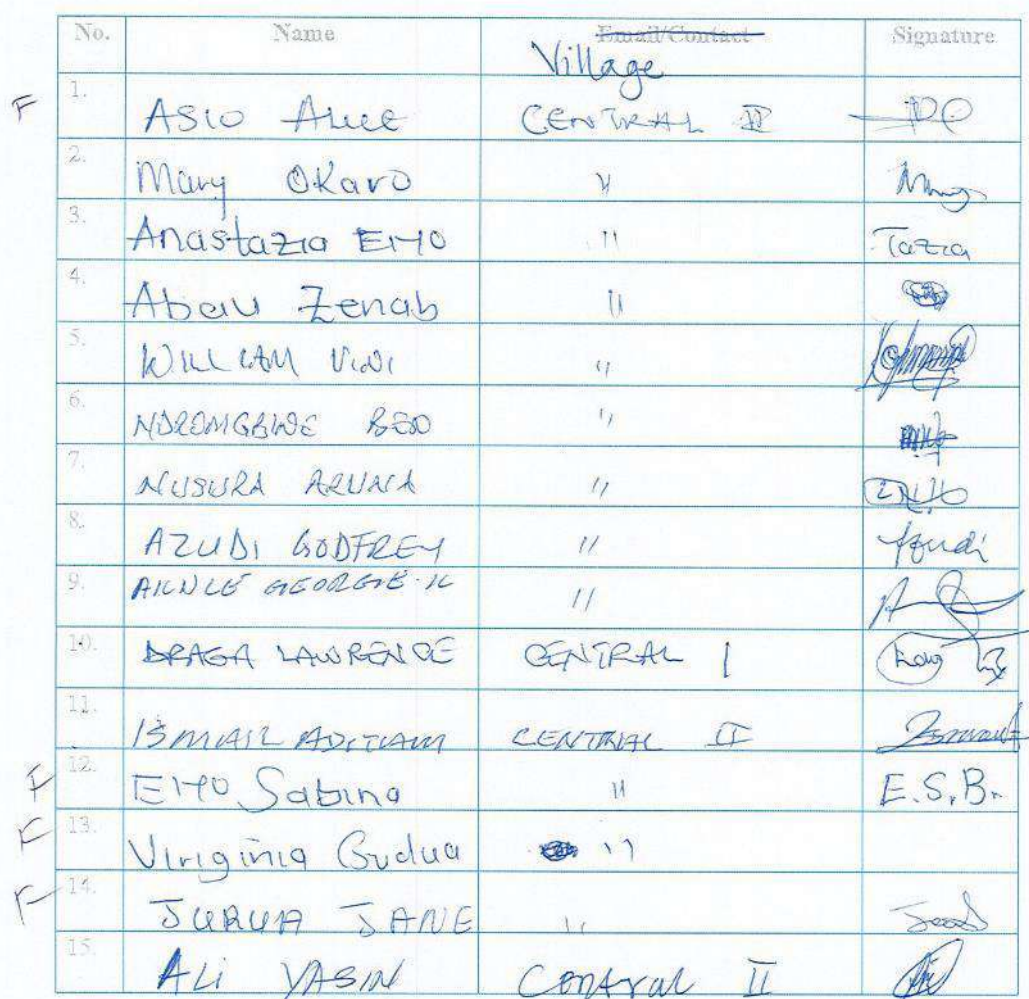 No. Name Email/Contact Signature
Village
F 1. ASIO Alice CENTRAL II
2. Mary Okavo "
3. Anastazia EIYO " Tazia
4. Abau Zenab "
5. WILLIAM VIDI "
6. "
7. NUSURA ARUNA "
8. AZUDI GODFREY " Azudi
9. GEORGE "
10. DRAGA LAWRENCE CENTRAL I
11. ISMAIL CENTRAL II
F 12. EIYO Sabina " E.S.B.
F 13. Viriginia Gudua "
F 14. JURUA JANE "
15. ALi YASIN Central II